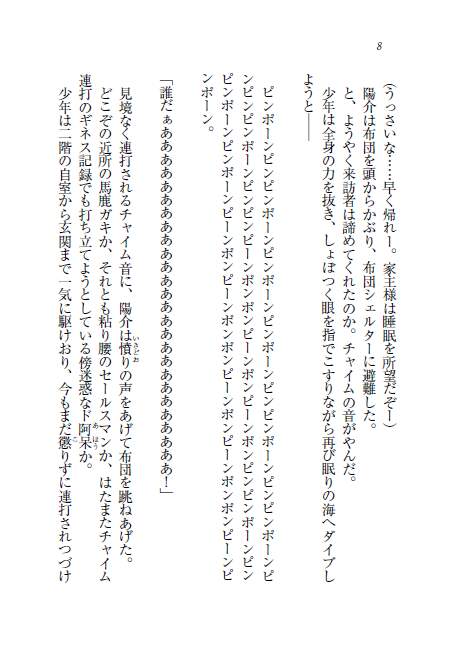 8
（うっさいな……早く帰れー。家主様は睡眠を所望だぞー）
陽介は布団を頭からかぶり、布団シェルターに避難した。
と、ようやく来訪者は諦めてくれたのか。チャイムの音がやんだ。
少年は全身の力を抜き、しょぼつく眼を指でこすりながら再び眠りの海へダイブし
ようと――
ピンポーンピンピンポーンピンポーンピンポーンピンポーンピンピンピンポーンピ
ンピンピンポーンピンポーンピンポンピンポンピンポーンピンピンポーンピンピン
ピンポーンピンポーンピンポーンピンポンピーンポンピーンポンポンピーンポンピーンピ
ンポーン。
「誰だぁああああああああああああああああああああああああ！」
見境なく連打されるチャイム音に、陽介は憤りの声をあげて布団を跳ねあげた。
どこぞの近所の馬鹿ガキか、それとも粘り腰のセールスマンか、はたまたチャイム
連打のギネス記録でも打ち立てようとしている傍迷惑なド阿呆か。
少年は二階の自室から玄関まで一気に駆けおり、今もまだ懲りずに連打されつづけ